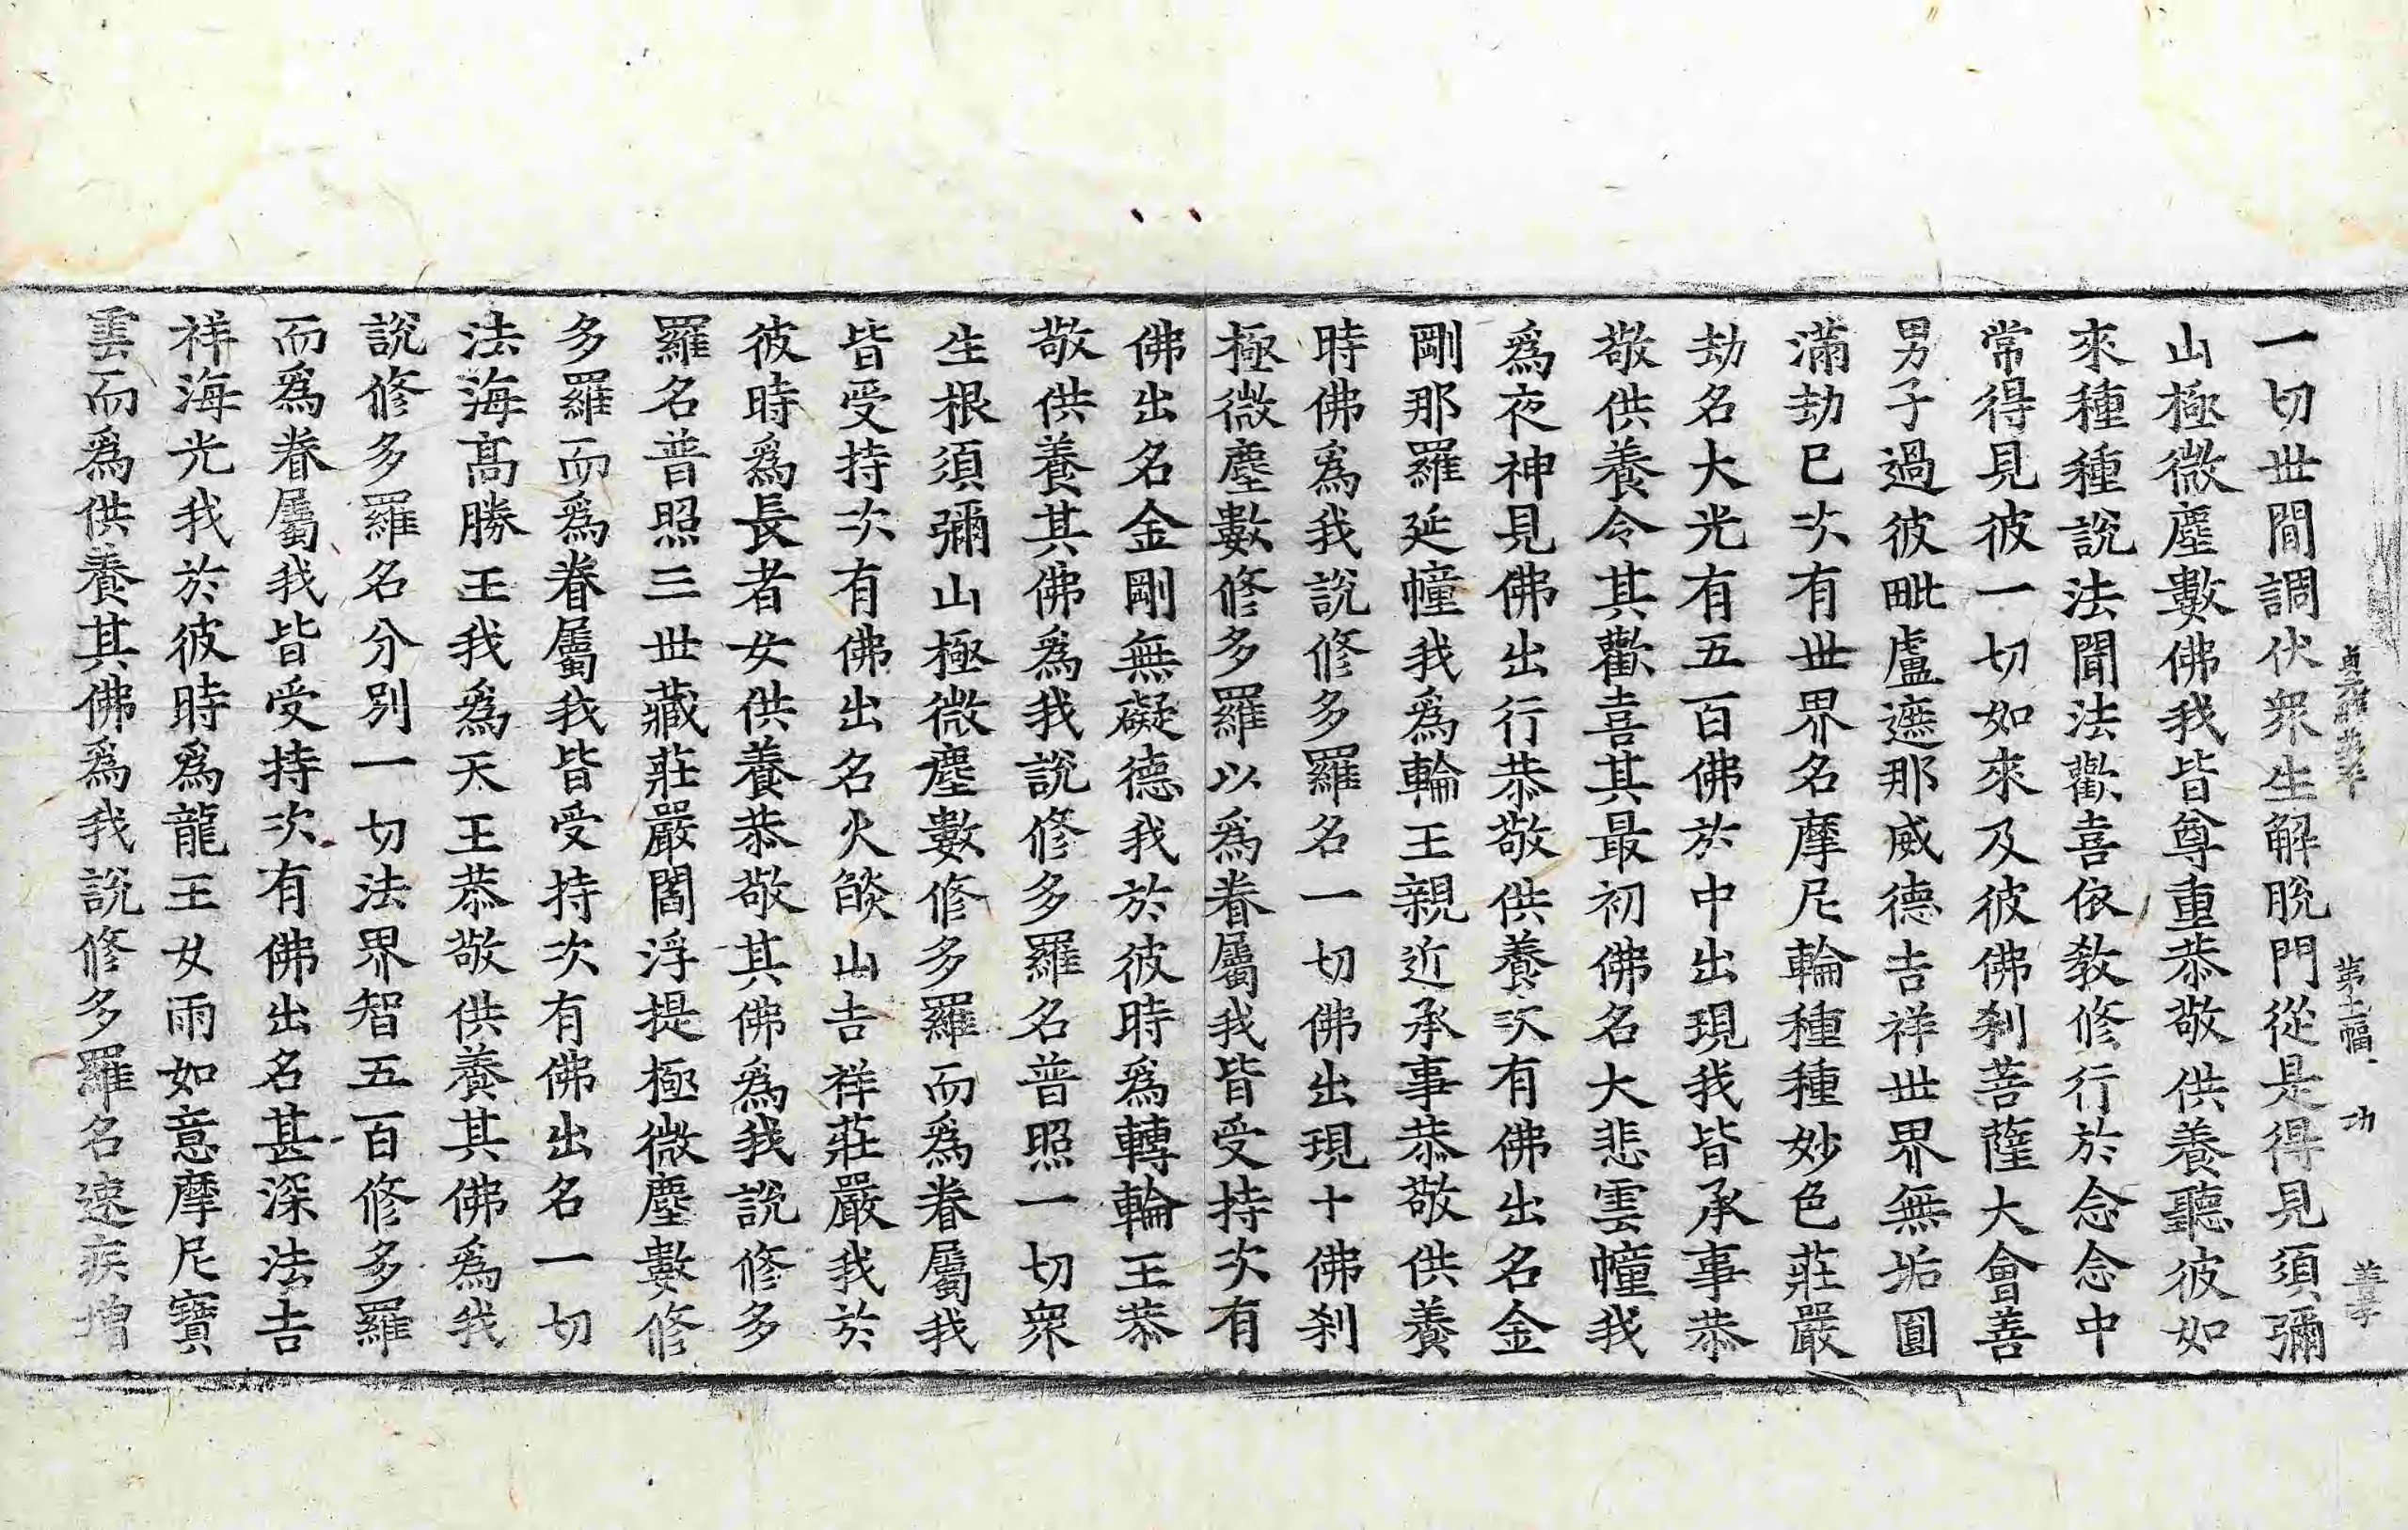 一切世閒調伏衆生解脫門從是得見須彌
山極微塵數佛我皆尊重恭敬供養聽彼如
來種種說法聞法歡喜依教修行於念念中
常得見彼一切如來及彼佛刹菩薩大會善
男子過彼毗盧遮那威德吉祥世界無垢圓
滿劫已次有世界名摩尼輪種種妙色莊嚴
劫名大光有五百佛於中出現我皆承事恭
敬供養令其歡喜其最初佛名大悲雲幢我
爲夜神見佛出行恭敬供養次有佛出名金
剛那羅延幢我爲輪王親近承事恭敬供養
時佛爲我說修多羅名一切佛出現十佛刹
極微塵數修多羅以爲眷屬我皆受持次有
佛出名金剛無礙德我於彼時爲轉輪王恭
敬供養其佛爲我說修多羅名普照一切衆
生根須彌山極微塵數修多羅而爲眷屬我
皆受持次有佛出名火燄山吉祥莊嚴我於
彼時爲長者女供養恭敬其佛爲我說修多
羅名普照三世藏莊嚴閻浮提極微塵數修
多羅而爲眷屬我皆受持次有佛出名一切
法海高勝王我爲天王恭敬供養其佛爲我
說修多羅名分別一切法界智五百修多羅
而爲眷屬我皆受持次有佛出名甚深法吉
祥海光我於彼時爲龍王女雨如意摩尼寶
雲而爲供養其佛爲我說修多羅名速疾增